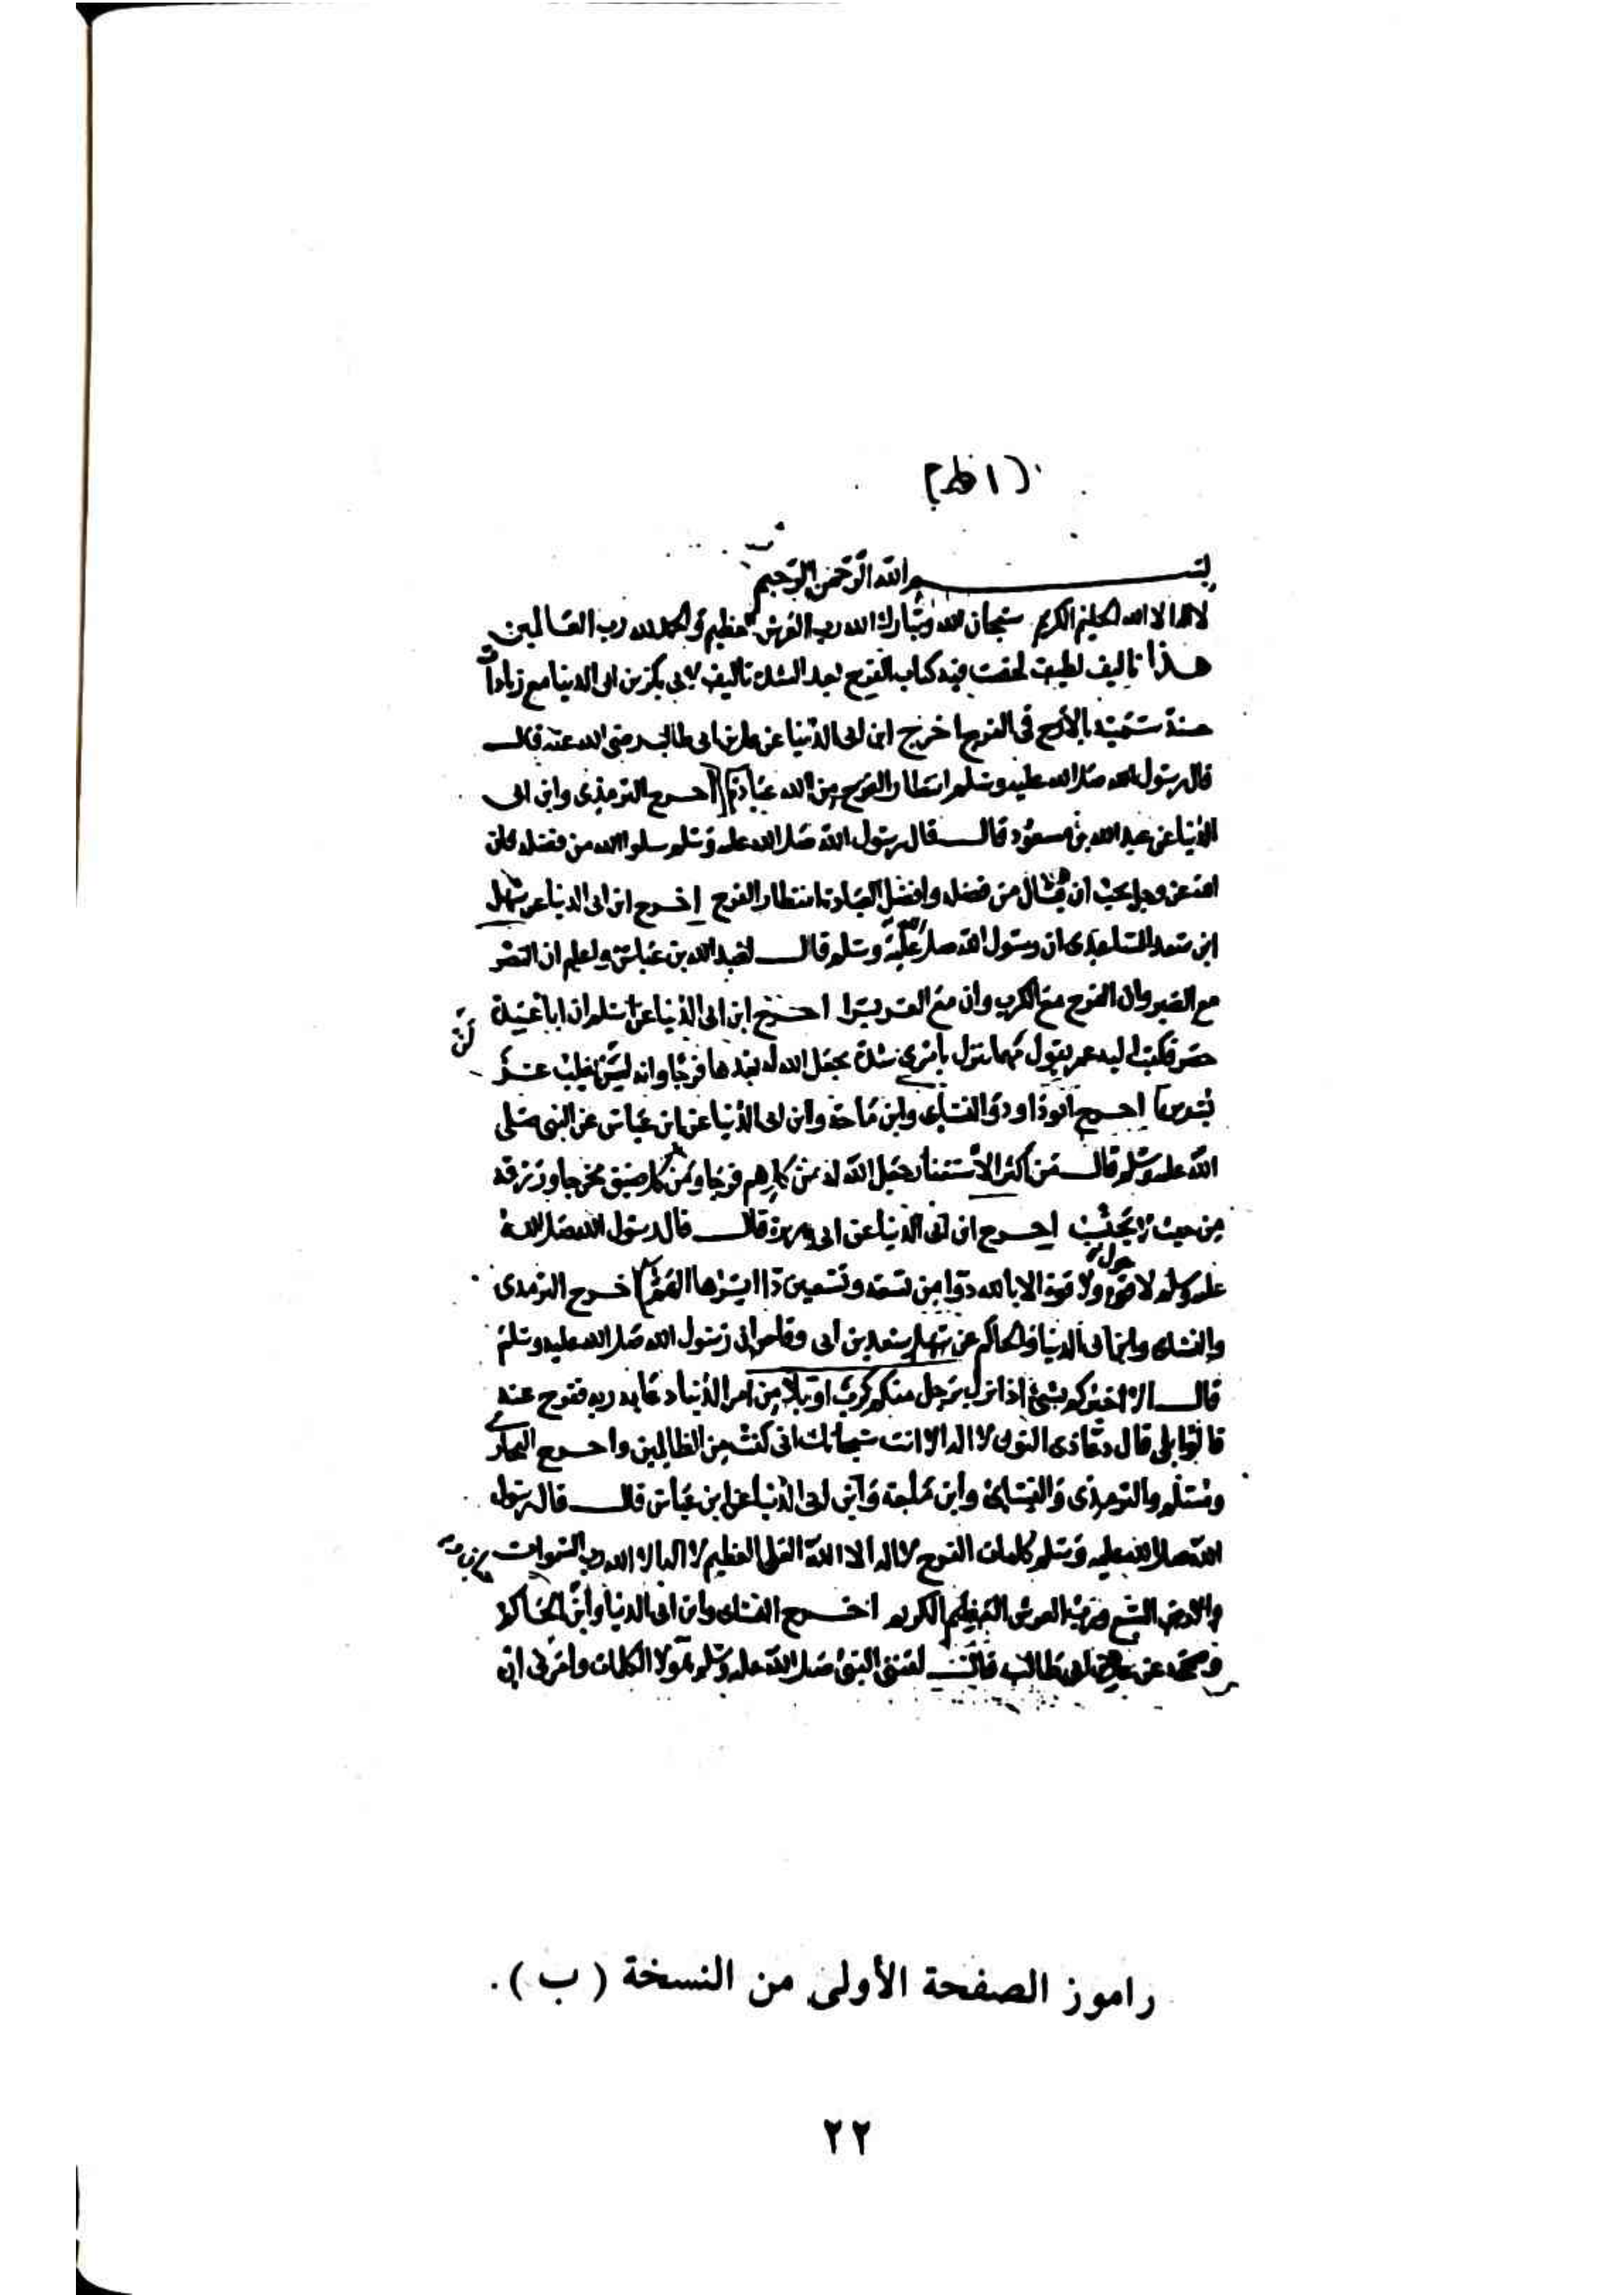 (١ ظ)
بسم الله الرحمن الرحيم
لا اله الا الله الحليم الكريم سبحان الله وتبارك الله رب العرش العظيم والحمد لله رب العالمين
هذا تاليف لطيف لخصت فيه كتاب الفرج بعد الشدة تاليف لابى بكر بن ابى الدنيا مع زيادات
حسنة سميته بالأرج فى الفرج اخرج ابن ابى الدنيا عن على بن ابى طالب رضى الله عنه قال
قال رسول الله صلى الله عليه وسلم انتظار الفرج من الله عبادة اخرج الترمذى وابن ابى
الدنيا عن عبد الله بن مسعود قال قال رسول الله صلى الله عليه وسلم سلوا الله من فضله فان
الله عز وجل يحب ان يسال من فضله وافضل العبادة انتظار الفرج اخرج ابن ابى الدنيا عن سهل
ابن سعد الساعدى ان رسول الله صلى الله عليه وسلم قال لعبد الله بن عباس واعلم ان النصر
مع الصبر وان الفرج مع الكرب وان مع العسر يسرا اخرج ابن ابى الدنيا عن اسلم ان ابا عبيدة
حصر فكتب اليه عمر يقول مهما ينزل بامرئ شدة يجعل الله له بعدها فرجا وانه ليس يغلب عسر
لن
يسرين اخرج ابو داود والنساى وابن ماجة وابن ابى الدنيا عن ابن عباس عن النبى صلى
الله عليه وسلم قال من اكثر الاستغفار جعل الله له من كل هم فرجا ومن كل ضيق مخرجا ورزقه
من حيث لا يحتسب اخرج ابن ابى الدنيا عن ابى هريرة قال قال رسول الله صلى الله
عليه وسلم لا حول ولا قوة الا بالله دوا من تسعة وتسعين دا ايسرها الهم اخرج الترمذى
والنساى وابن ابى الدنيا والحاكم عن سعد بن ابى وقاص ان رسول الله صلى الله عليه وسلم
قال الا اخبركم بشئ اذا نزل برجل منكم كرب او بلا من امر الدنيا دعا به ربه ففرج عنه
قالوا بلى قال دعا ذى النون لا اله الا انت سبحانك انى كنت من الظالمين واخرج البخارى
ومسلم والترمذى والنساى وابن ماجة وابن ابى الدنيا عن ابن عباس قال قال رسول
الله صلى الله عليه وسلم كلمات الفرج لا اله الا الله العلى العظيم لا اله الا الله رب السموات
والارض السبع ورب العرش العظيم الكريم اخرج النساى وابن ابى الدنيا والحاكم
وصححه عن على بن ابى طالب قال لقننى النبى صلى الله عليه وسلم هولا الكلمات وامرنى ان
راموز الصفحة الأولى من النسخة ( ب ) .
٢٢